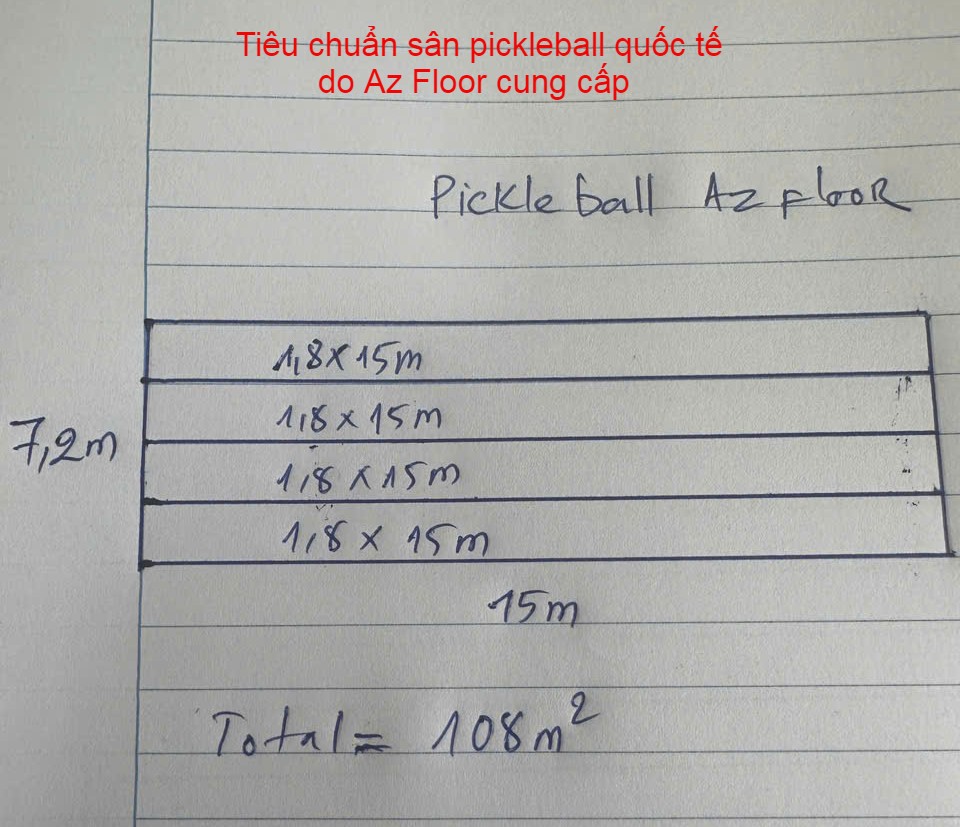 Tiêu chuẩn sân pickleball quốc tế
do Az Floor cung cấp
Pickleball Az FlooR
1,8 x 15m
1,8 x 15m
7,2m
1,8 x 15m
1,8 x 15m
15m
Total = 108m²